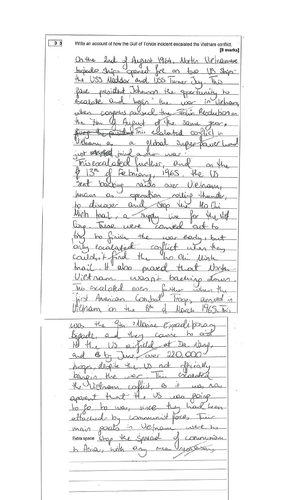 Write an account of how the Gulf of Tonkin incident escalated the Vietnam conflict.
[8 marks]
On the 2nd of August 1964, North Vietnamese
torpedo ships opened fire on two US ships
the USS Maddox and USS Turner Joy. This
gave president Johnson the opportunity to
escalate and begin the war in Vietnam,
when congress passed the Tonkin Resolution on
the 7th of August of the same year,
This escalated conflict in
Vietnam as a global superpower had
war.
This escalated further, and on the
13th of February, 1965, the US
sent bombing raids over Vietnam,
known as operation rolling thunder,
to discover and stop the Ho Chi
Minh trail, a supply line for the
Cong. These were carried out to
try to finish the war early, but
only escalated conflict when they
couldn't find the Ho Chi Minh
trail. It also proved that North
Vietnam wasn't backing down.
This escalated even further when the
first American Combat Troops arrived in
Vietnam on the 8th of March 1965. This
was the 9th Marine Expeditionary
Brigade, and they came to
the US airfield at Da Nang,
and by June, over 220,000
troops, despite the US not officially
being in the war. This escalated
the Vietnam conflict, as it was now
apparent that the US was going
to go to war, since they had been
attacked by communist forces. Their
main goals in Vietnam were to
Extra space stop the spread of communism
in Asia, with any means necessary.